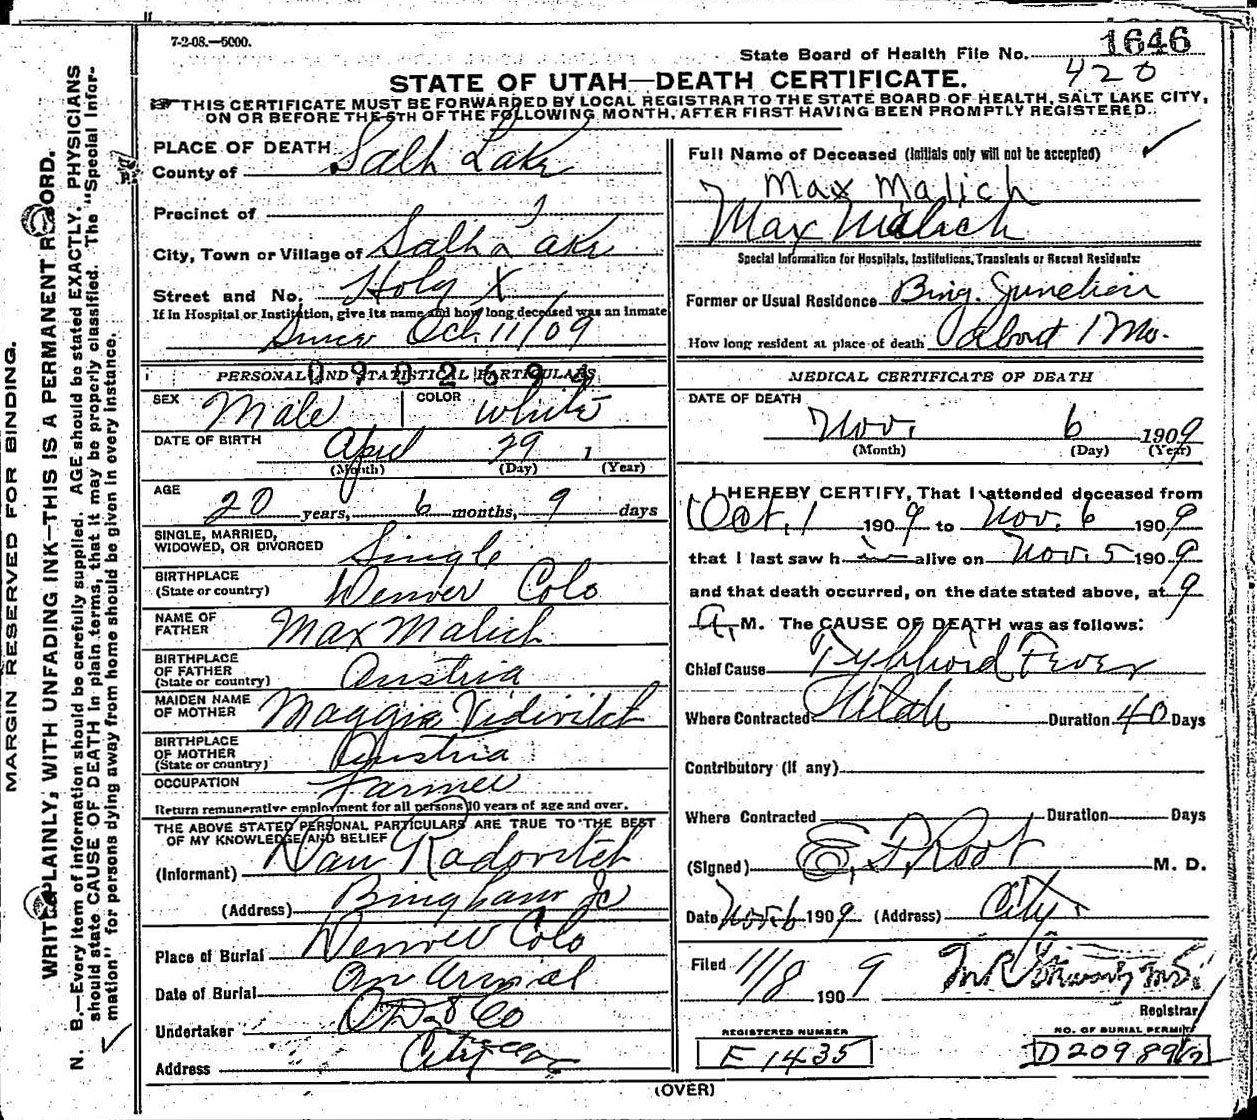 7-2-08.—5000.
1646
State Board of Health File No.
420
STATE OF UTAH—DEATH CERTIFICATE.
THIS CERTIFICATE MUST BE FORWARDED BY LOCAL REGISTRAR TO THE STATE BOARD OF HEALTH, SALT LAKE CITY,
ON OR BEFORE THE 5TH OF THE FOLLOWING MONTH, AFTER FIRST HAVING BEEN PROMPTLY REGISTERED.
MARGIN RESERVED FOR BINDING.
WRITE PLAINLY, WITH UNFADING INK—THIS IS A PERMANENT RECORD.
N. B.—Every item of information should be carefully supplied. AGE should be stated EXACTLY. PHYSICIANS
should state CAUSE OF DEATH in plain terms, that it may be properly classified. The "Special Infor-
mation" for persons dying away from home should be given in every instance.
PLACE OF DEATH
County of Salt Lake
Precinct of
City, Town or Village of Salt Lake
Street and No. Holy X
If in Hospital or Institution, give its name and how long deceased was an inmate
Since Oct. 11/09
PERSONAL AND STATISTICAL PARTICULARS
SEX Male COLOR White
DATE OF BIRTH April 29 1
(Month) (Day) (Year)
AGE
20 years, 6 months, 9 days
SINGLE, MARRIED,
WIDOWED, OR DIVORCED Single
BIRTHPLACE
(State or country) Denver Colo
NAME OF
FATHER Max Malich
BIRTHPLACE
OF FATHER
(State or country) Austria
MAIDEN NAME
OF MOTHER Maggie Vidivitch
BIRTHPLACE
OF MOTHER
(State or country) Austria
OCCUPATION Farmer
Return remunerative employment for all persons 10 years of age and over.
THE ABOVE STATED PERSONAL PARTICULARS ARE TRUE TO THE BEST
OF MY KNOWLEDGE AND BELIEF
(Informant) Dan Radovitch
(Address) Bingham Jc
Place of Burial Denver Colo
Date of Burial On arrival
Undertaker
Address City
Full Name of Deceased (Initials only will not be accepted)
Max Malich
Max Malich
Special Information for Hospitals, Institutions, Transients or Recent Residents:
Former or Usual Residence Bing. Junction
How long resident at place of death About 1 Mo.
MEDICAL CERTIFICATE OF DEATH
DATE OF DEATH
Nov. 6 1909
(Month) (Day) (Year)
I HEREBY CERTIFY, That I attended deceased from
Oct. 1 1909 to Nov. 6 1909
that I last saw him alive on Nov. 5 1909
and that death occurred, on the date stated above, at 9
A. M. The CAUSE OF DEATH was as follows:
Chief Cause Typhoid Fever
Where Contracted Utah Duration 40 Days
Contributory (if any)
Where Contracted Duration Days
(Signed) E. F. Root M. D.
Date Nov. 6 1909 (Address) City
Filed 11/8 1909
Registrar
REGISTERED NUMBER
E 1435
NO. OF BURIAL PERMIT
(OVER)